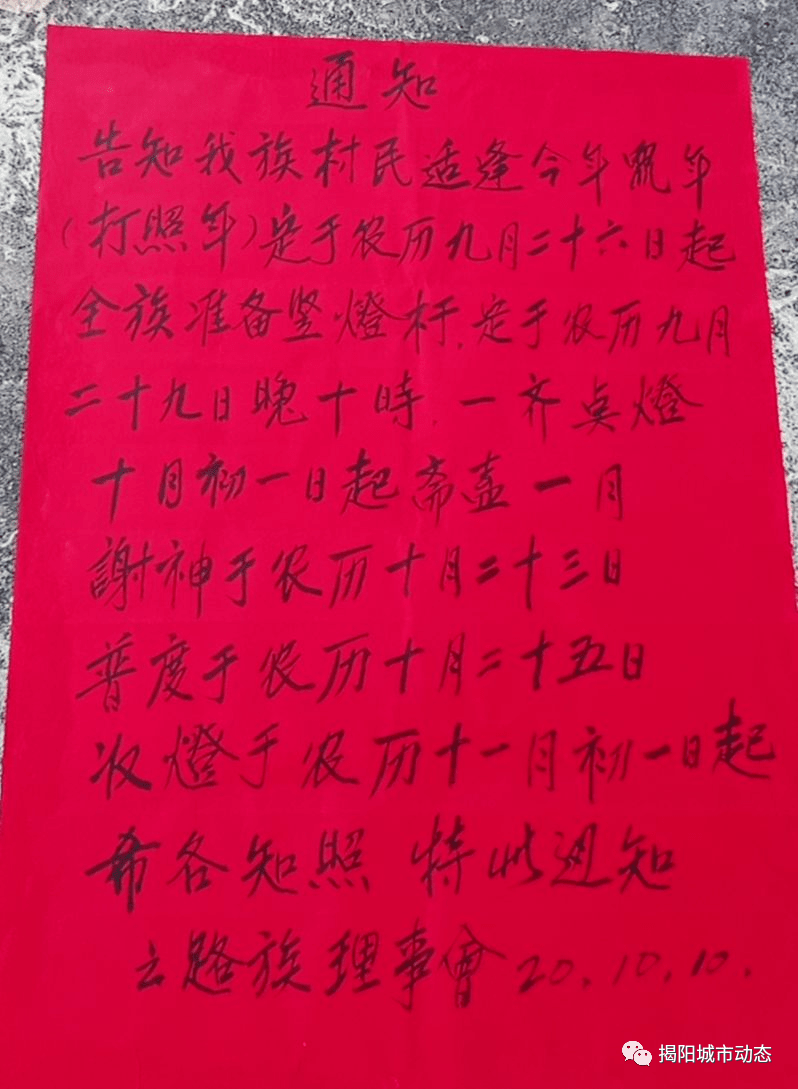 通知
告知我族村民适逢今年甿年
(打照年)定于农历九月二十六日起
全族准备竖燈杆.定于农历九月
二十九日晚十時.一齐点燈
十月初一日起斋盍一月
謝神于农历十月二十三日
普度于农历十月二十五日
收燈于农历十一月初一日起
希各知照 特此通知
云路族理事會20.10.10.
揭阳城市动态